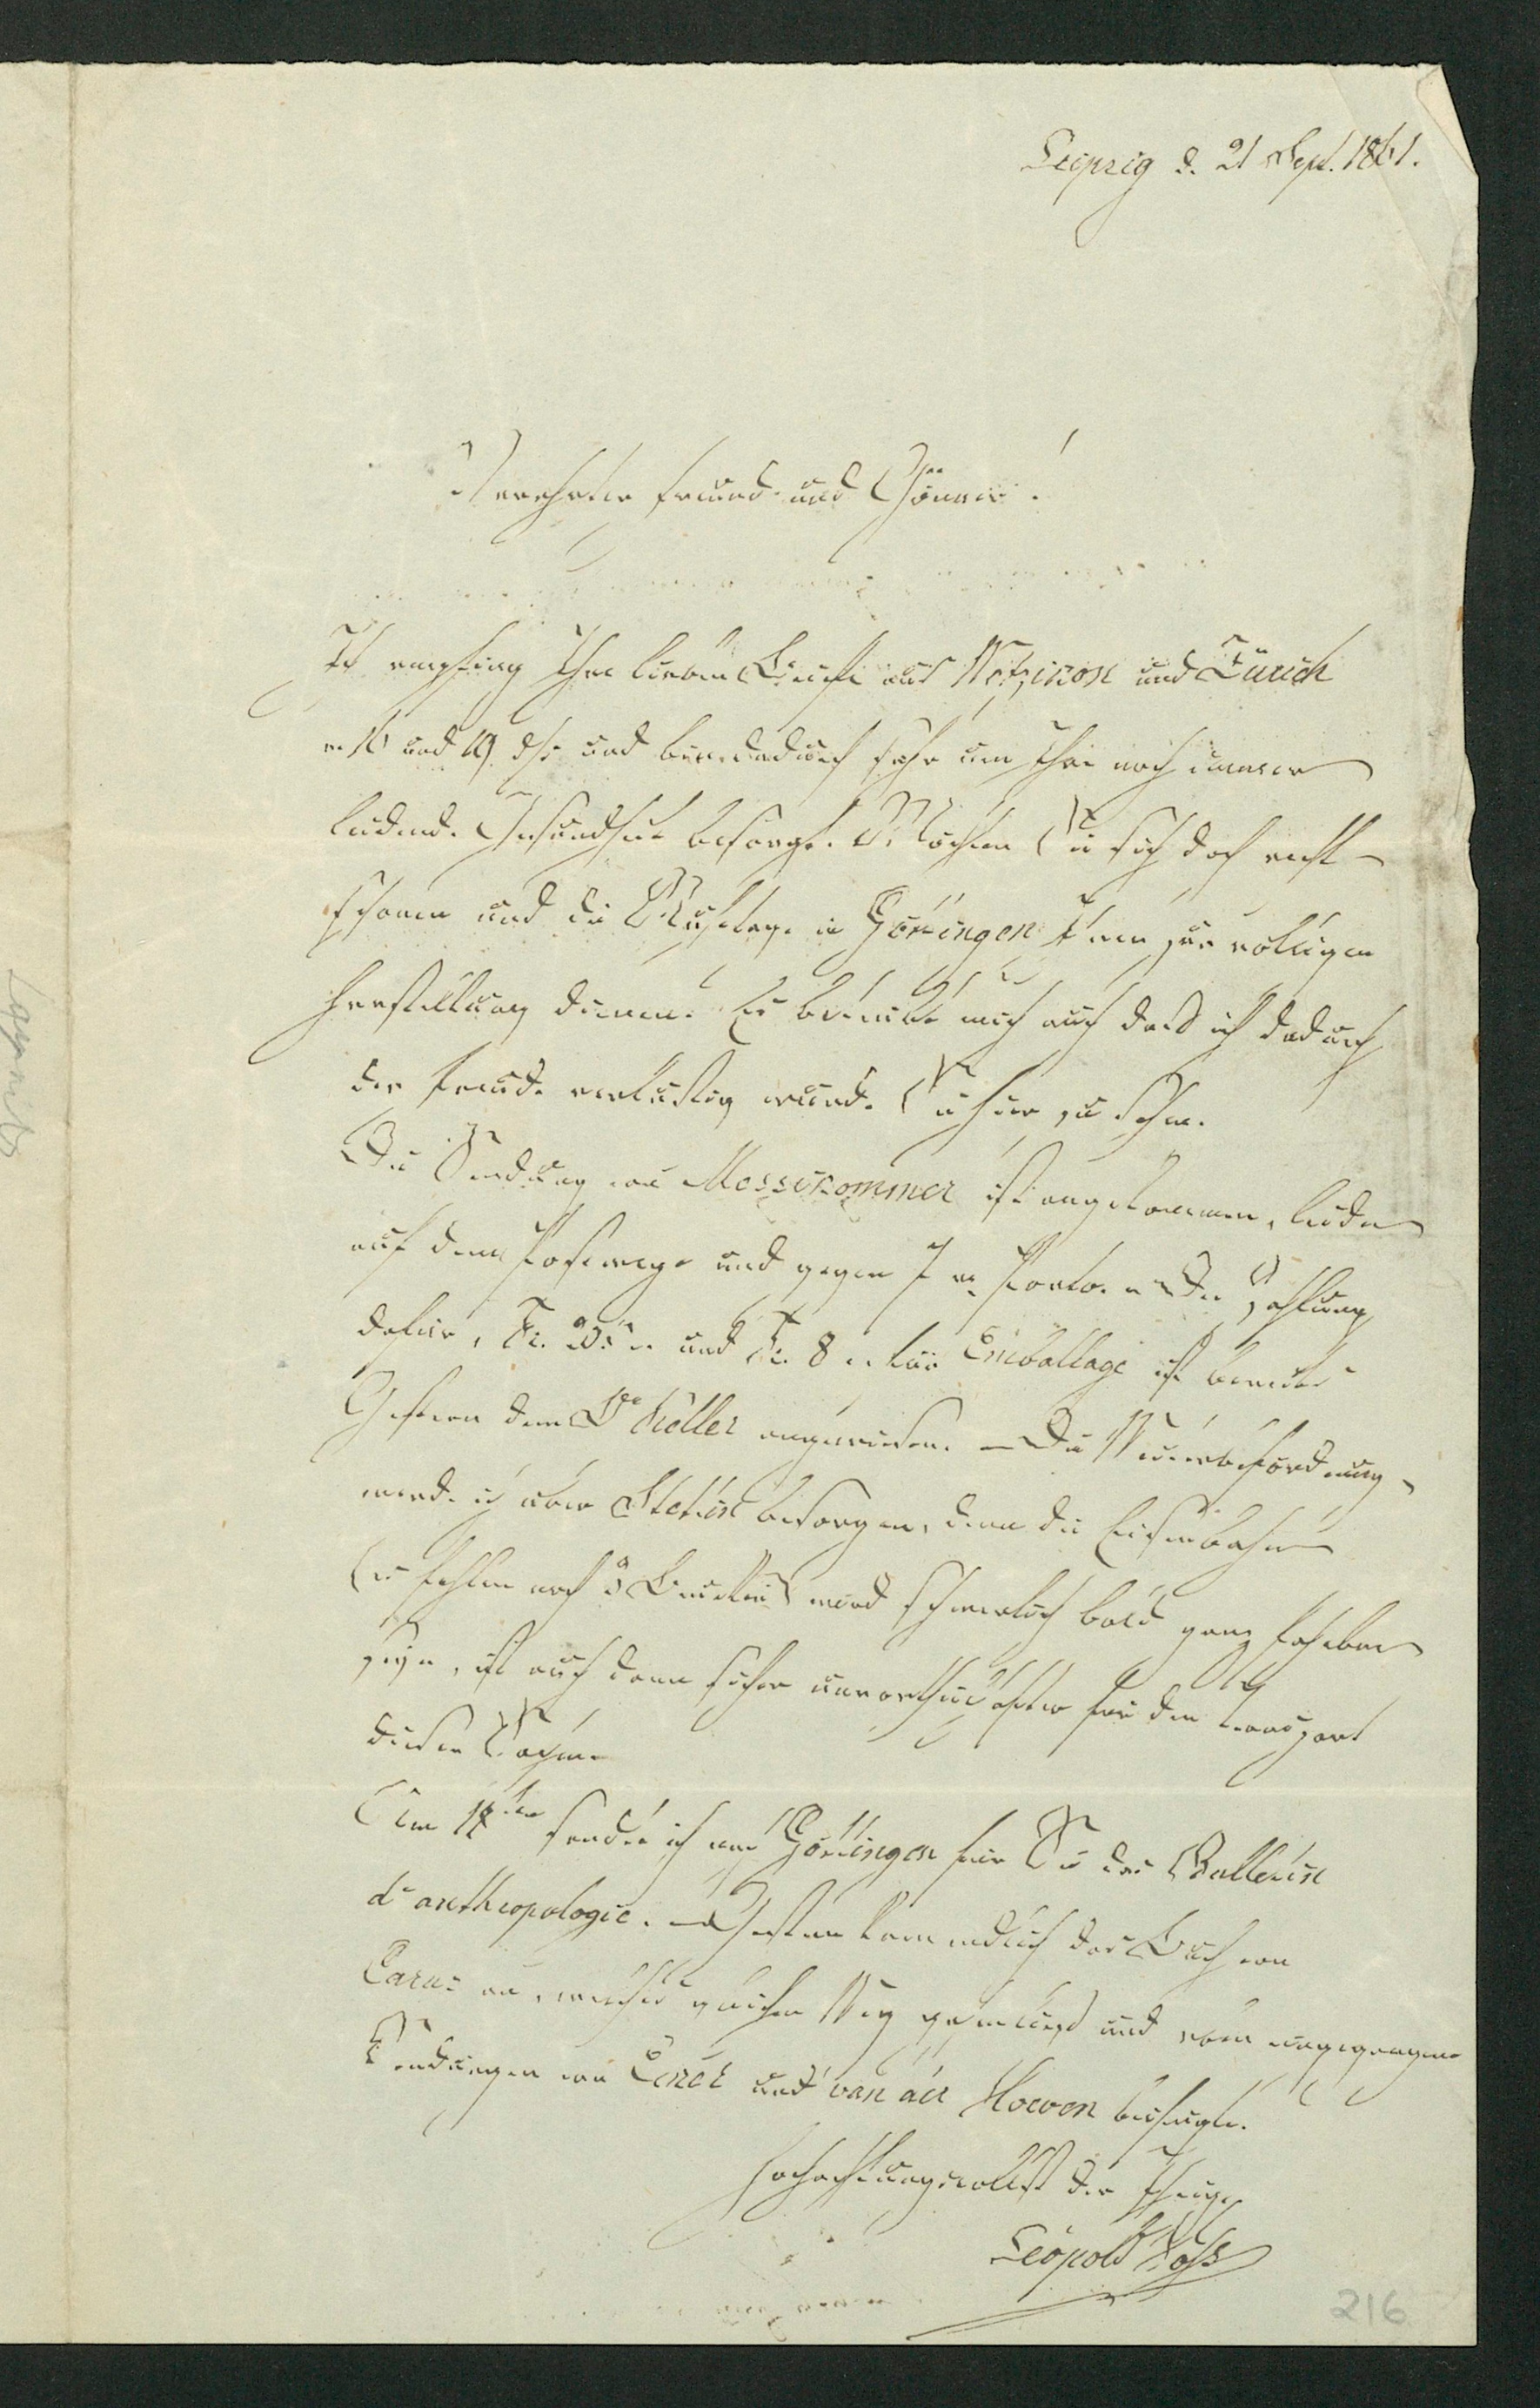 Leipzig d. 21 Sept. 1861.
Verehrter Freund und Gönner!
Ich empfing Ihre lieben Briefe aus Wetzikon und Zürich
v. 16 und 19. ds. und bin dadurch sehr um Ihre noch immer
leidende Gesundheit besorgt. Möchten Sie sich doch recht
schonen und die Ruhetage in Göttingen Ihnen zur völligen
Herstellung dienen. Es betrübt mich auch daß ich dadurch
der Freude verlustig wurde Sie hier zu sehen.
Die Sendung von Messikommer ist angekommen, leider
auf dem Postwege und gegen Porto. Die Zahlung
dafür, und Fr. 8 für Emballage ist bereits
Gestern dem angewiesen. – Die Weiterbeförderung
werde ich über Stettin besorgen, denn die Eisenbahn
(es fehlen noch 3 Brücken) wird schwerlich bald ganz fahrbar
seyn, ist auch dann sicher unvortheilhafter für den Transport
dieser Sachen.
Am ten sendete ich nach Göttingen für Sie das Bulletin
d'anthropologie. – Gestern kam endlich das Buch von
Carus an, welches gleichen Weg geht und eben eingegangene
Sendungen von und van der Hoeven beifügte.
Hochachtungsvollst der Ihrige
Leopold Voß
216